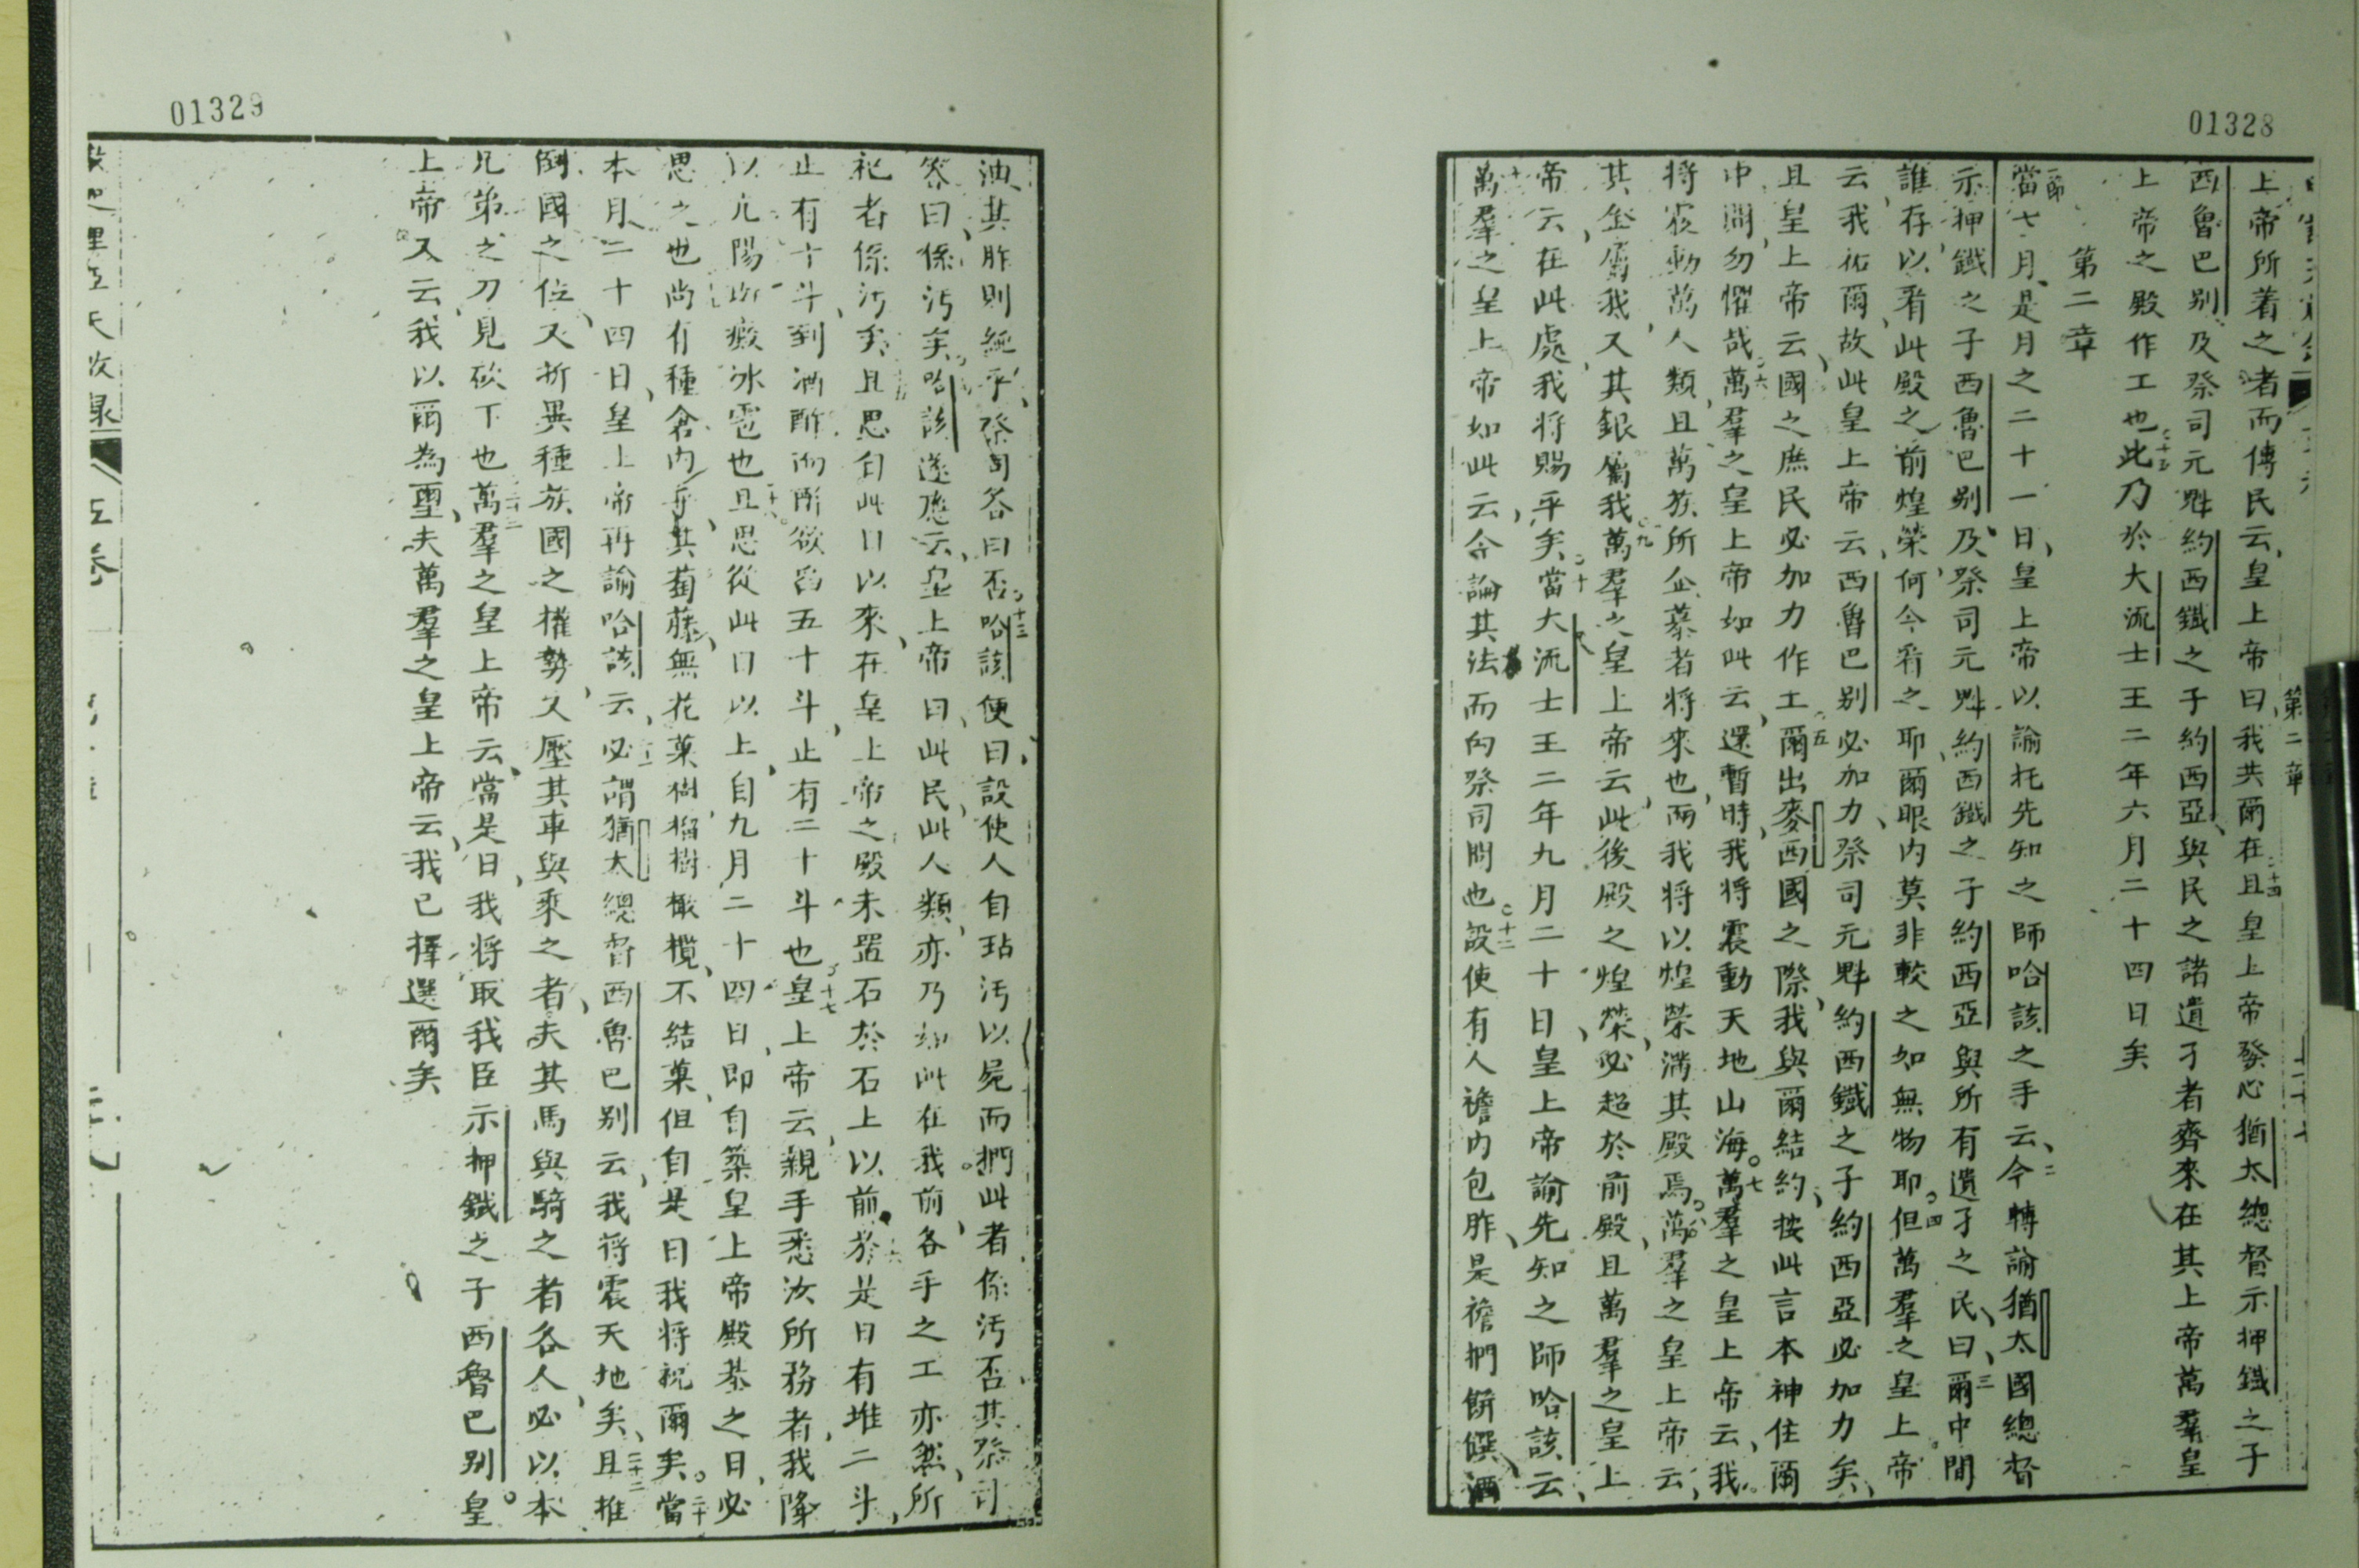 01328
上帝所着之者而傳民云皇上帝曰我共爾在且皇上帝發心猶太總督示押鐵之子
西魯巴别及祭司元魁約西鐵之子約西亞與民之諸遺孑者齊來在其上帝萬羣皇
上帝之殿作工也此乃於大流士王二年六月二十四日矣
第二章
當七月是月之二十一日皇上帝以諭托先知之師哈該之手云今轉諭猶太國總督
示押鐵之子西魯巴别及祭司元魁約西鐵之子約西亞與所有遺孑之民曰爾中間
誰存以看此殿之前煌榮何今看之耶爾眼内莫非較之如無物耶但萬羣之皇上帝
云我祐爾故此皇上帝云西魯巴别必加力祭司元魁約西鐵之子約西亞必加力矣
且皇上帝云國之庶民必加力作工爾出麥西國之際我與爾結約按此言本神住爾
中間勿懼哉萬羣之皇上帝如此云還暫時我將震動天地山海萬羣之皇上帝云我
將震動萬人類且萬族所企慕者將來也而我將以煌榮滿其殿焉萬羣之皇上帝云
其金屬我又其銀屬我萬羣之皇上帝云此後殿之煌榮必超於前殿且萬羣之皇上
帝云在此處我將賜平矣當大流士王二年九月二十日皇上帝諭先知之師哈該云
萬羣之皇上帝如此云今論其法而向祭司問也設使有人襜内包胙是襜捫餅饌酒
01329
油其胙則純乎祭司答曰否哈該便曰設使人自玷污以屍而捫此者係污否其祭司
答曰係污矣哈該遂應云皇上帝曰此民此人類亦乃如此在我前各手之工亦然所
祀者係污矣且思自此日以來在皇上帝之殿未置石於石上以前於是日有堆二斗
止有十斗到酒醡而欲舀五十斗止有二十斗也皇上帝云親手悉汝所務者我降
以亢陽瘢冰雹也且思從此日以上自九月二十四日即自築皇上帝殿基之日必
思之也尚有種倉内乎其萄藤無花菓樹榴樹橄欖不結菓但自是日我將祝爾矣當
本月二十四日皇上帝再諭哈該云必謂猶太總督西魯巴别云我將震天地矣且推
倒國之位又折異種族國之權勢又壓其車與乘之者夫其馬與騎之者各人必以本
兄弟之刀見砍下也萬羣之皇上帝云當是日我將取我臣示押鐵之子西魯巴别皇
上帝又云我以爾為璽夫萬羣之皇上帝云我已擇選爾矣